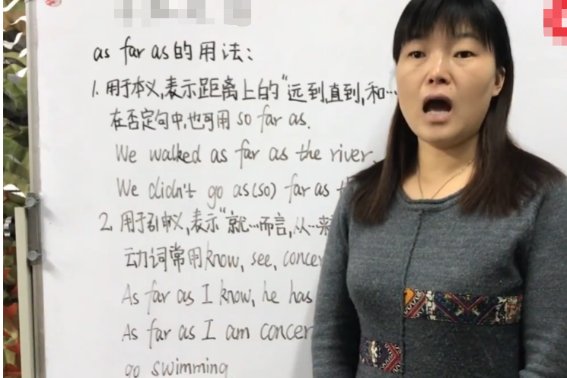 as far as的用法：
1. 用于本义，表示距离上的“远到直到，和…
在否定句中，也可用so far as.
We walked as far as the river.
We didn't go as(so) far as
2. 用于引申义，表示“就…而言，从…来
动词常用know, see, concer
As far as I know, he has
As far as I am concer
go swimming